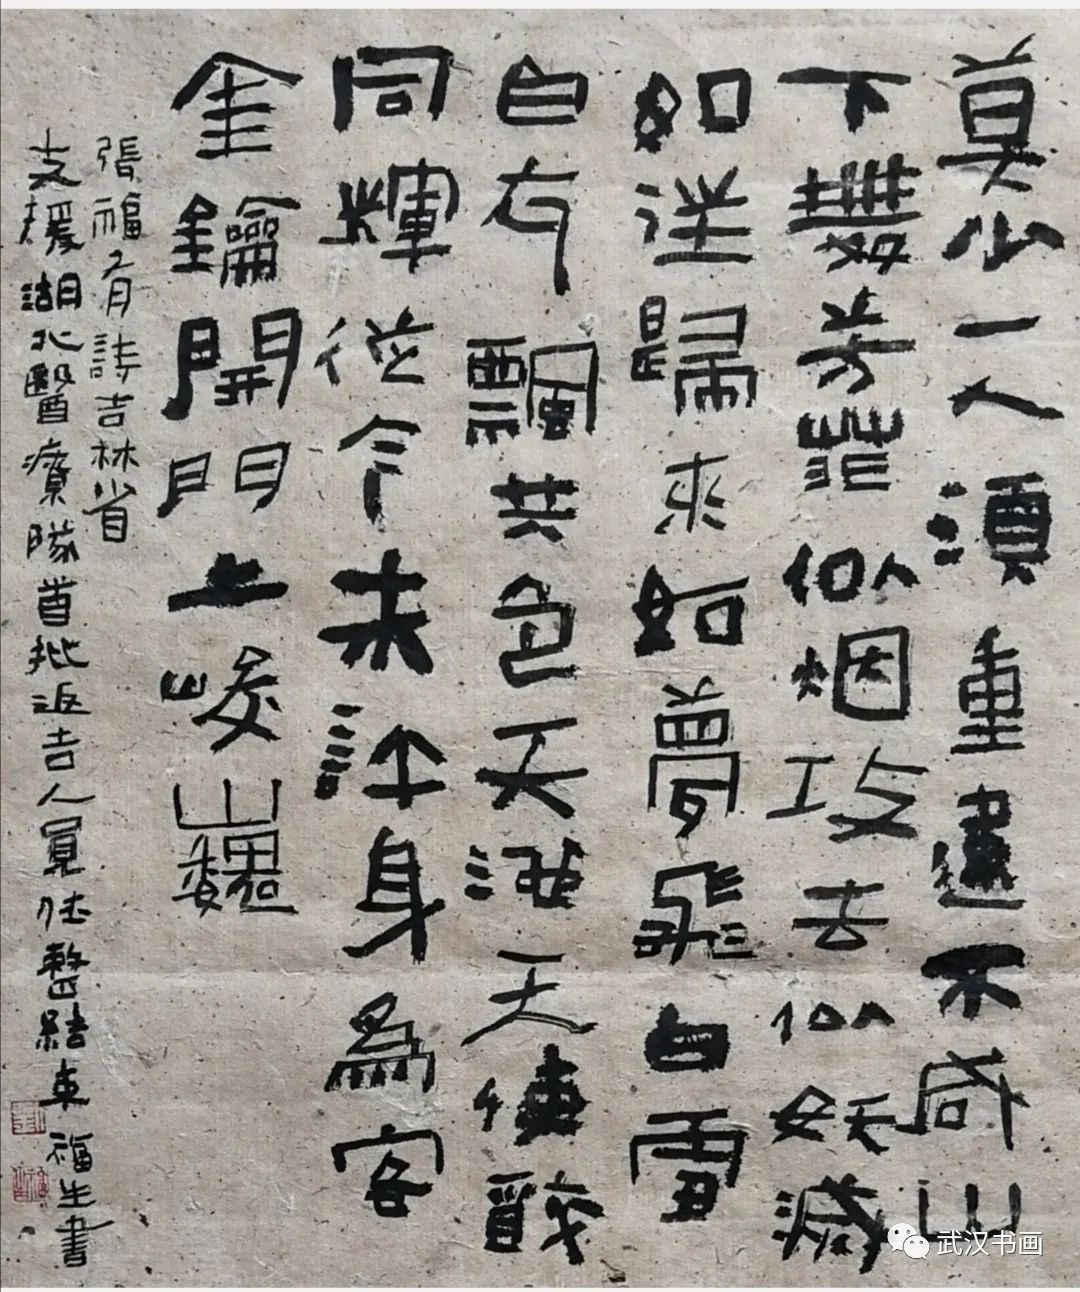 莫少一人須重不咸山
下芳菲似烟攻去似妖滅
如歸來如夢飛白雪
白衣飄共色天池天使皎
同輝從今未許身為客
金鑰開門上峻巍
張福有詩吉林省
支援湖北醫療隊首批返吉人員休整結束 福生書
武汉书画